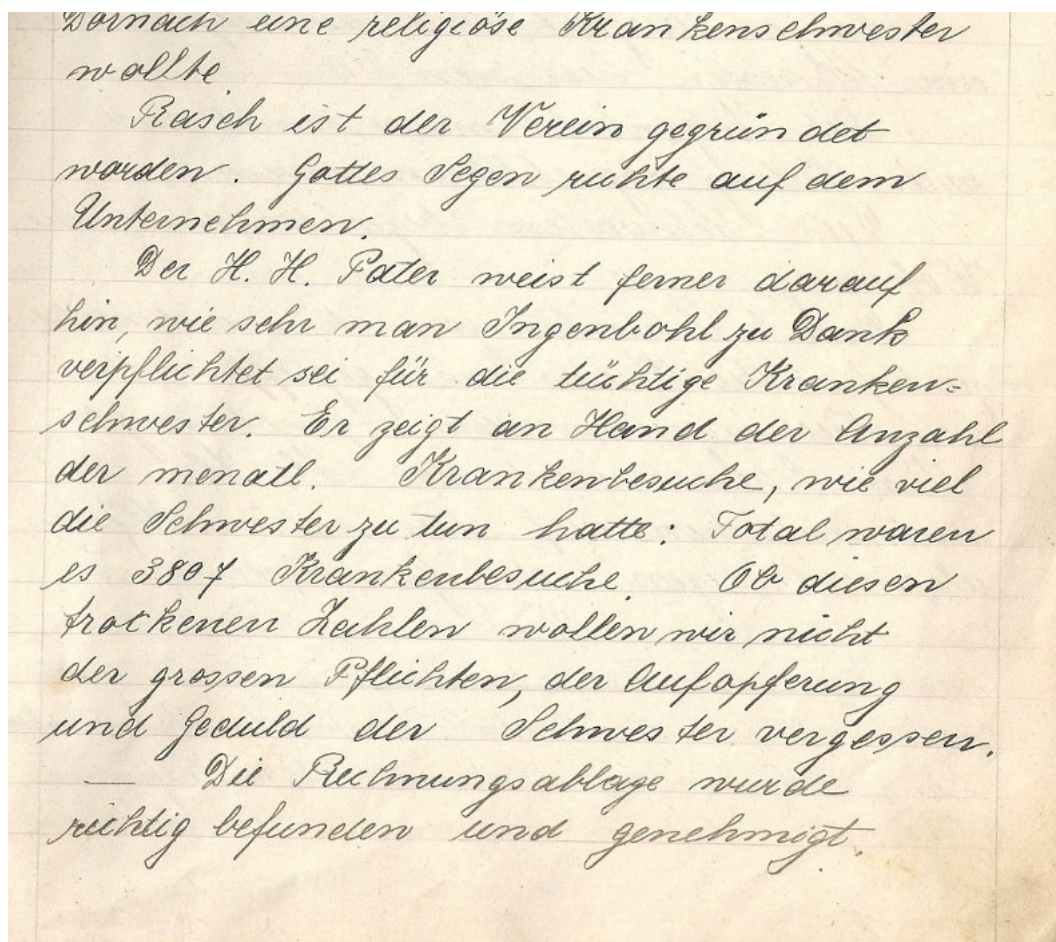 Dornach eine religiöse Krankenschwester
wollte
Rasch ist der Verein gegründet
worden. Gottes Segen ruhte auf dem
Unternehmen.
Der H. H. Pater weist ferner darauf
hin, wie sehr man Ingenbohl zu Dank
verpflichtet sei für die tüchtige Kranken=
schwester. Er zeigt an Hand der Anzahl
der monatl. Krankenbesuche, wie viel
die Schwester zu tun hatte: Total waren
es 3807 Krankenbesuche. Ob diesen
trockenen Zahlen wollen wir nicht
der grossen Pflichten, der Aufopferung
und Geduld der Schwester vergessen.
— Die Rechnungsablage wurde
richtig befunden und genehmigt.